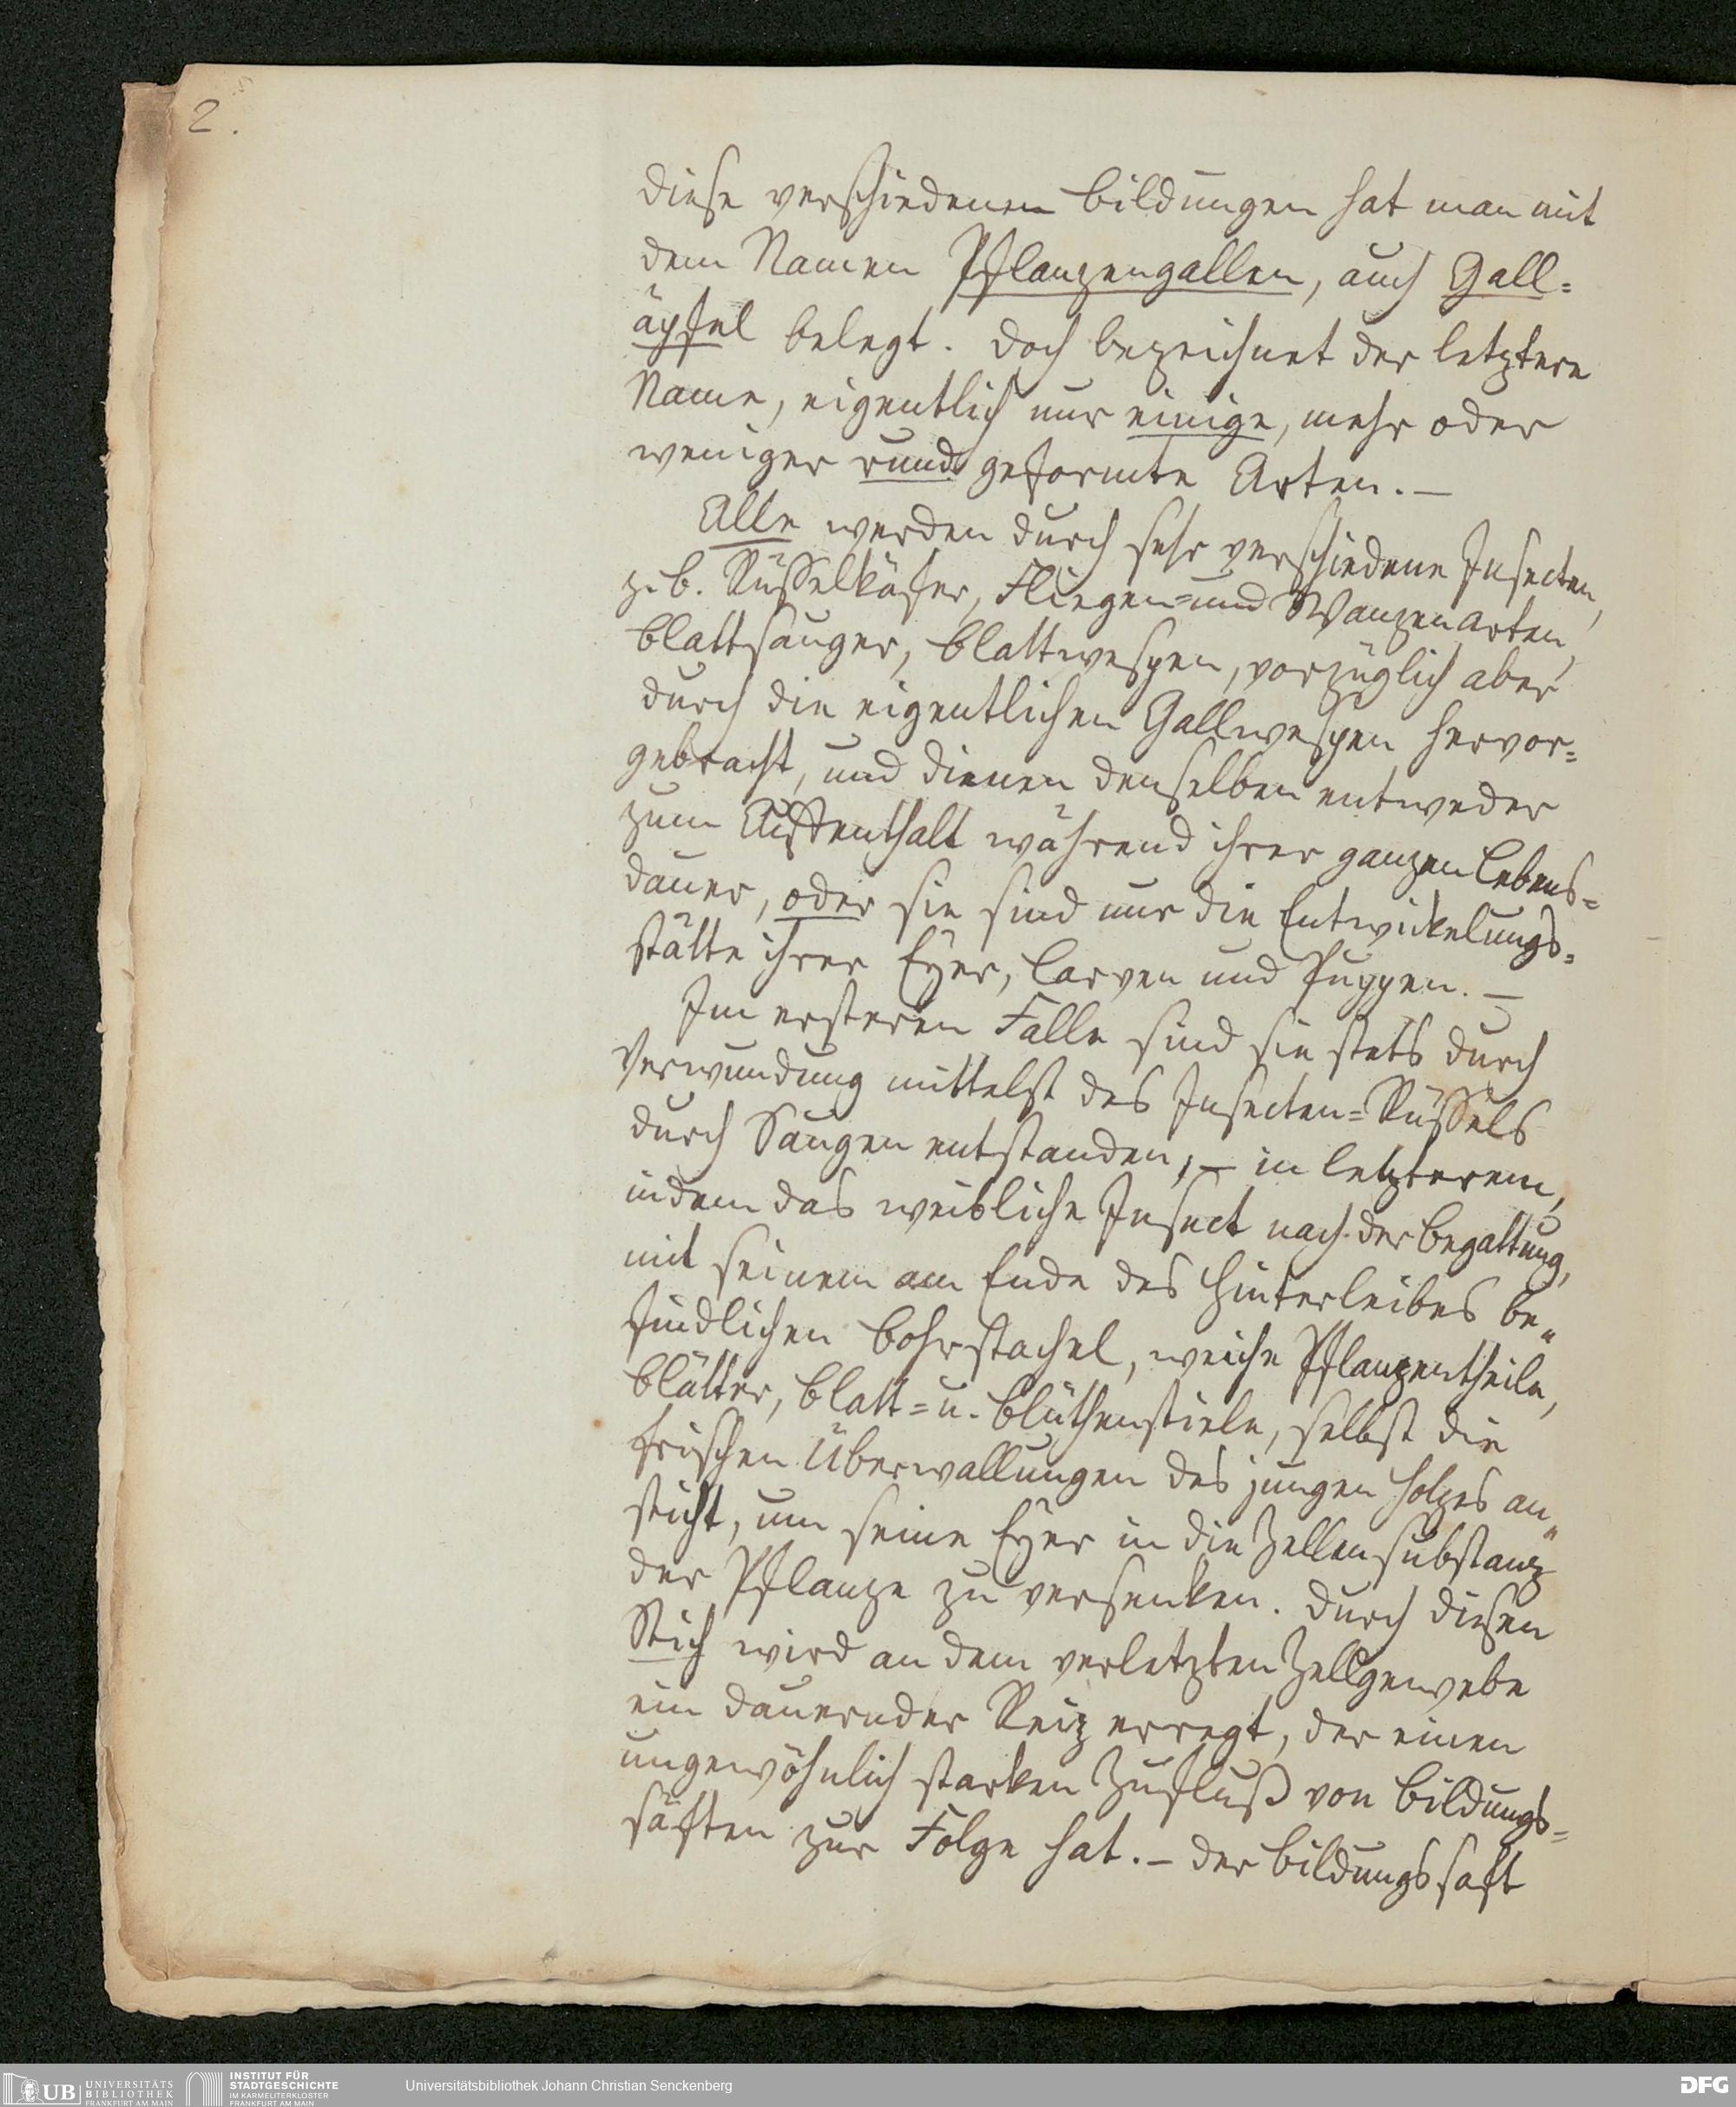 2.
diese verschiedenen Bildungen hat man mit
dem Namen Pflanzengallen, auch Gall=
äpfel belegt. Doch bezeichnet der letztere
Name, eigentlich nur einige, mehr oder
weniger rund geformte Arten. —
Alle werden durch sehr verschiedene Insecten,
z. B. Rüsselkäfer, Fliegen= und Wanzenarten,
Blattsauger, Blattwespen, vorzüglich aber
durch die eigentlichen Gallwespen hervor=
gebracht, und dienen denselben entweder
zum Aufenthalt während ihrer ganzen Lebens=
dauer, oder sie sind nur die Entwickelungs=
stätte ihrer Eyer, Larven und Puppen. —
Im ersteren Falle sind sie stets durch
Verwundung mittelst des Insecten=Rüssels
durch Saugen entstanden, — in letzterem,
indem das weibliche Insect nach der Begattung,
mit seinem am Ende des Hinterleibes be„
findlichen Bohrstachel, weiche Pflanzentheile,
Blätter, Blatt= u. Blüthenstiele, selbst die
frischen Überwallungen des jungen Holzes an„
sticht, um seine Eyer in die Zellensubstanz
der Pflanze zu versenken. Durch diesen
Stich wird an dem verletzten Zellgewebe
ein dauernder Reiz erregt, der einen
ungewöhnlich starken Zufluß von Bildungs=
säften zur Folge hat. — Der Bildungssaft
UB UNIVERSITÄTS
BIBLIOTHEK
FRANKFURT AM MAIN
INSTITUT FÜR
STADTGESCHICHTE
IM KARMELITERKLOSTER
FRANKFURT AM MAIN
Universitätsbibliothek Johann Christian Senckenberg
DFG